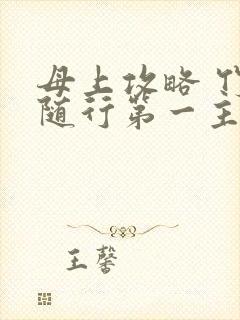 母上攻略
随行第一主
王馨